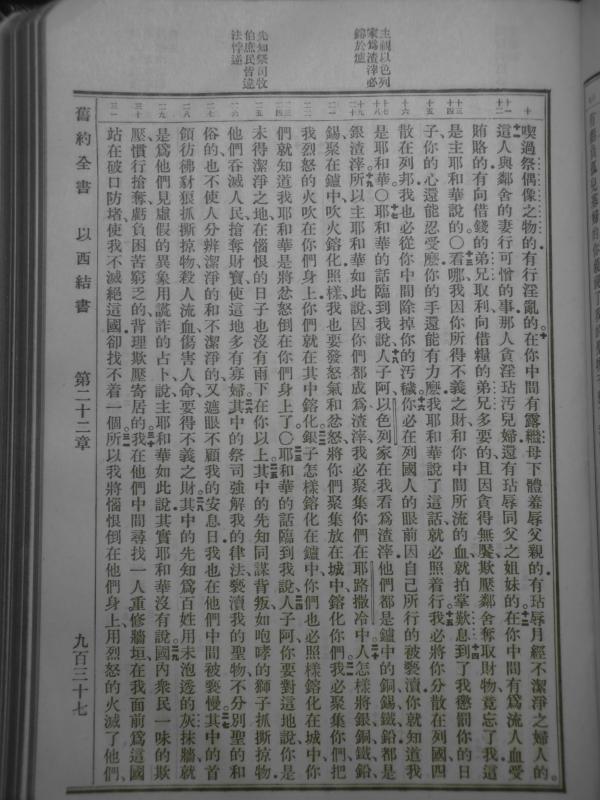 主視以色列
家爲渣滓必
鎔於爐
先知祭司牧
伯庶民皆違
法悖逆
十 喫過祭偶像之物的有行淫亂的在你中間有露繼母下體羞辱父親的有玷辱月經不潔淨之婦人的
十一 這人與鄰舍的妻行可憎的事那人貪淫玷污兒婦還有玷辱同父之姐妹的在你中間有爲流人血受
十二 賄賂的有向借錢的弟兄取利向借糧的弟兄多要的且因貪得無饜欺壓鄰舍奪取財物竟忘了我這
十三 十四 是主耶和華說的〇看哪我因你所得不義之財和你中間所流的血就拍掌歎息到了我懲罰你的日
十五 子你的心還能忍受麼你的手還能有力麼我耶和華說了這話就必照着行我必將你分散在列國四
十六 散在列邦我也必從你中間除掉你的污穢你必在列國人的眼前因自己所行的被褻瀆你就知道我
十七 十八 是耶和華〇耶和華的話臨到我說人子阿以色列家在我看爲渣滓他們都是鑪中的銅錫鐵鉛都是
十九 二十 銀渣滓所以主耶和華如此說因你們都成爲渣滓我必聚集你們在耶路撒冷中人怎樣將銀銅鐵鉛
二一 錫聚在鑪中吹火鎔化照樣我也要發怒氣和忿怒將你們聚集放在城中鎔化你們我必聚集你們把
二二 我烈怒的火吹在你們身上你們就在其中鎔化銀子怎樣鎔化在鑪中你們也必照樣鎔化在城中你
二三 二四 們就知道我耶和華是將忿怒倒在你們身上了〇耶和華的話臨到我說人子阿你要對這地說你是
二五 未得潔淨之地在惱恨的日子也沒有雨下在你以上其中的先知同謀背叛如咆哮的獅子抓撕掠物
二六 他們吞滅人民搶奪財寶使這地多有寡婦其中的祭司強解我的律法褻瀆我的聖物不分別聖的和
二七 俗的也不使人分辨潔淨的和不潔淨的又遮眼不顧我的安息日我也在他們中間被褻慢其中的首
二八 領彷彿豺狼抓撕掠物殺人流血傷害人命要得不義之財其中的先知爲百姓用未泡透的灰抹牆就
二九 是爲他們見虛假的異象用謊詐的占卜說主耶和華如此說其實耶和華沒有說國內衆民一味的欺
三十 壓慣行搶奪虧負困苦窮乏的背理欺壓寄居的我在他們中間尋找一人重修牆垣在我面前爲這國
三一 站在破口防堵使我不滅絕這國卻找不着一個所以我將惱恨倒在他們身上用烈怒的火滅了他們
舊約全書 以西結書 第二十二章 九百三十七